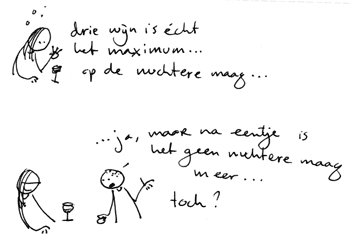 drie wijn is écht
het maximum...
op de nuchtere maag...
...ja, maar na eentje is
het geen nuchtere maag
meer...
toch?